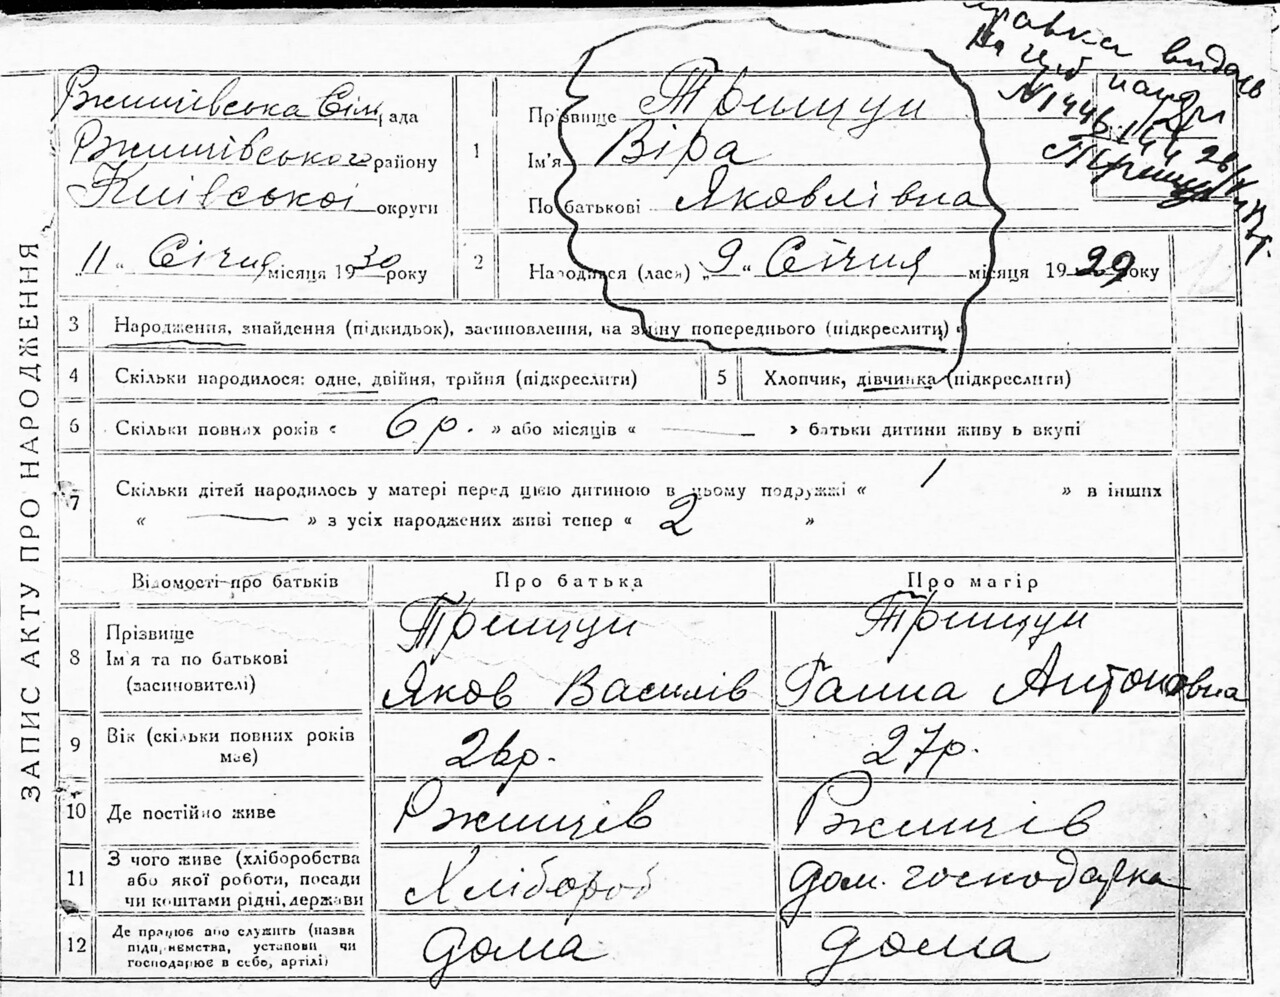 ЗАПИС АКТУ ПРО НАРОДЖЕННЯ
видань
На
N 1446
Ржищівська Сільрада
Ржищівського району
Київської округи
11 " Січня місяця 1930 року
1
Прізвище Трищун
Ім'я Віра
По батькові Яковлівна
2
Народився (лася) „ 9 " Січня місяця 1929 року
3 Народження, знайдення (підкидьок), засиновлення, на зміну попереднього (підкреслити)
4 Скільки народилося: одне, двійня, трійня (підкреслити)
5 Хлопчик, дівчинка (підкреслити)
6 Скільки повних років « 6 р. » або місяців « — » батьки дитини живуть вкупі
7 Скільки дітей народилось у матері перед цією дитиною в цьому подружжі « 1 » в інших
« — » з усіх народжених живі тепер « 2 »
Відомості про батьків Про батька Про матір
8 Прізвище
Ім'я та по батькові
(засиновителі)
Трищун
Яков Василів
Трищун
Ганна Антоновна
9 Вік (скільки повних років
має)
26р.
27р.
10 Де постійно живе Ржищев Ржищів
11 З чого живе (хліборобства
або якої роботи, посади
чи коштами рідні, держави
Хлібороб
дом. господарка
12 Де працює або служить (назва
підприємства, установи чи
господарює в себе, артілі)
дома
дома